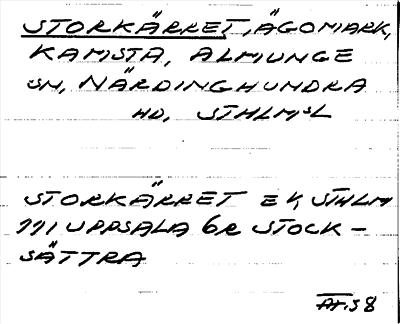 STORKÄRRET, ÄGOMARK,
KAMSTA, ALMUNGE
SN, NÄRDINGHUNDRA
HD, STHLMSL
STORKÄRRET EK, STHLM
111 UPPSALA 6R STOCK-
SÄTTRA